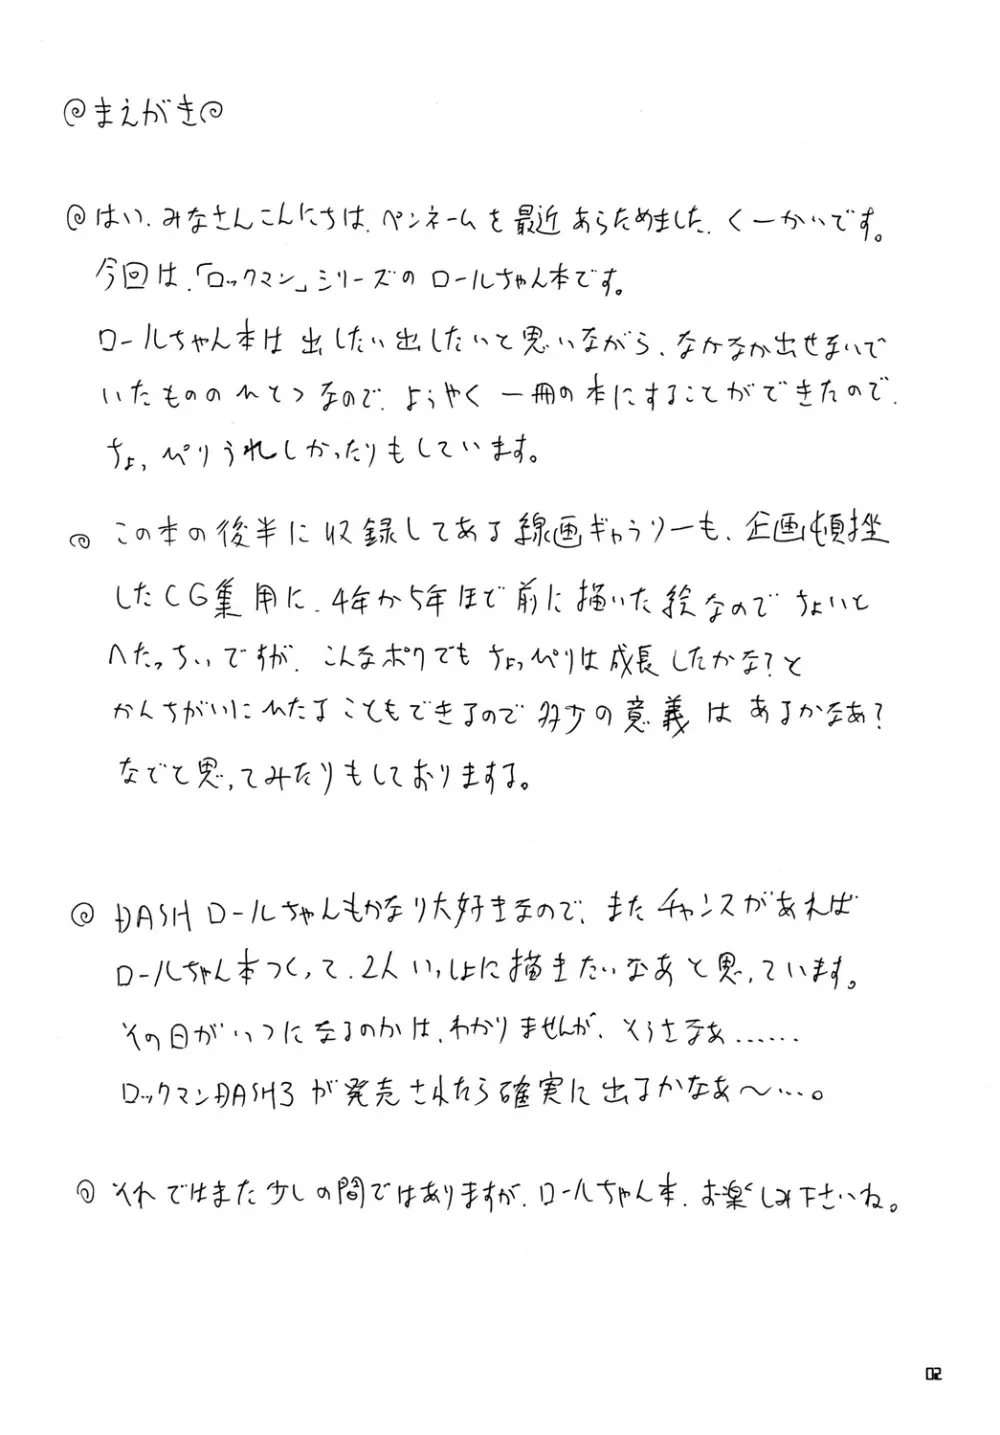 @まえがき@
@はい、みなさんこんにちは、ペンネームを最近あらためました、くーかいです。
今回は、「ロックマン」シリーズのロールちゃん本です。
ロールちゃん本は出したい出したいと思いながら、なかなか出せないで
いたもののひとつなので、ようやく一冊の本にすることができたので、
ちょっぴりうれしかったりもしています。
@この本の後半に収録してある線画ギャラリーも、企画頓挫
したCG集用に、4年から5年ほど前に描いた絵なのでちょいと
へたっちぃですが、こんなボクでもちょっぴりは成長したかな?と
かんちがいにひたることもできるので多少の意義はあるかなあ?
などと思ってみたりもしておりまする。
@DASHロールちゃんもかなり大好きなので、またチャンスがあれば
ロールちゃん本つくって、2人いっしょに描きたいなあと思っています。
その日がいつになるのかは、わかりませんが、そうさなぁ……
ロックマンDASH3が発売されたら確実に出るかなあ〜…。
@それではまた少しの間ではありますが、ロールちゃん本、お楽しみ下さいね。
02